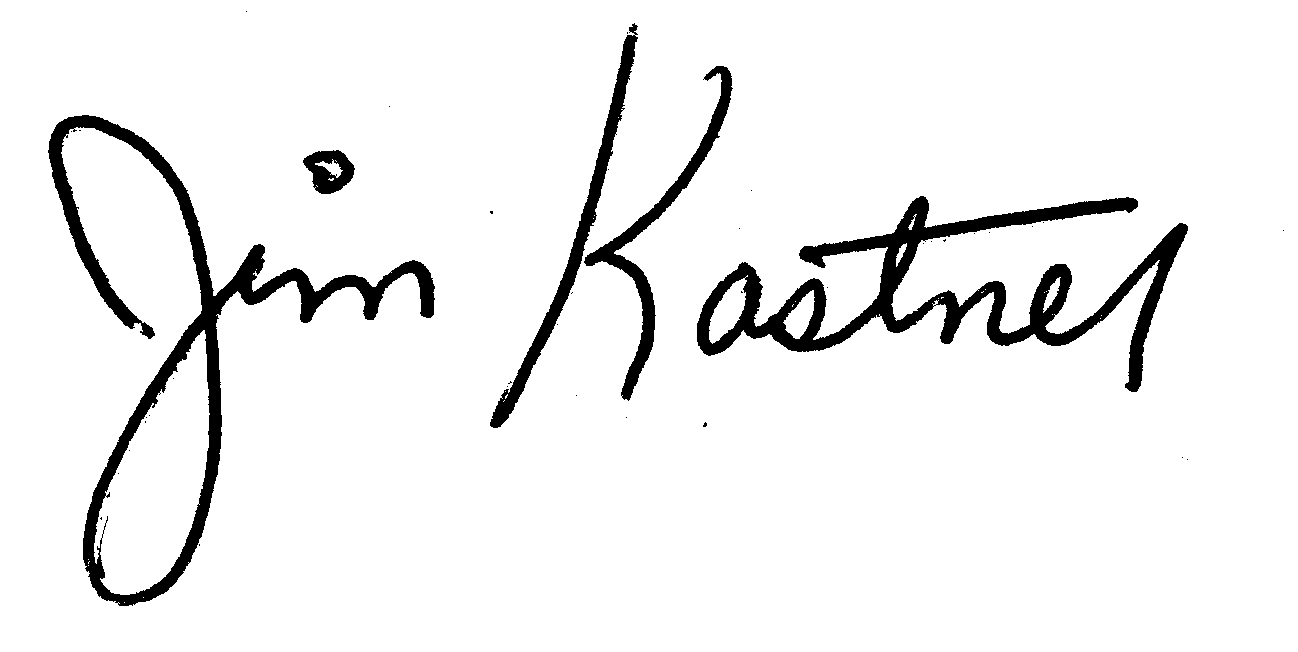 Jim Kastner